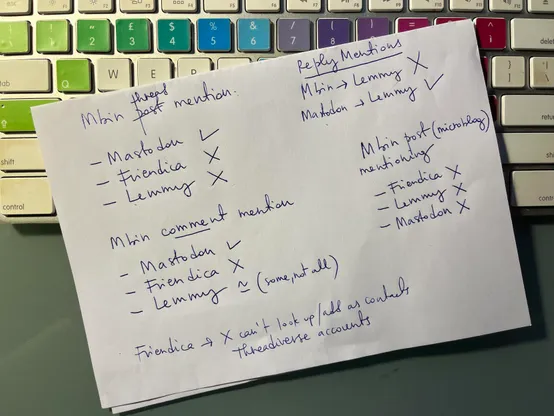 Mbin thread
post mention:
- Mastodon ✓
- Friendica X
- Lemmy X
Mbin comment mention
- Mastodon ✓
- Friendica X
- Lemmy ≃ (some, not all)
Friendica → X can't look up/add as contacts
threadiverse accounts
Reply Mentions
Mbin → Lemmy X
Mastodon → Lemmy ✓
Mbin post (microblog)
mentioning
- Friendica X
- Lemmy X
- Mastodon X
tab
shift
control
Q
W
E
R
1
2
3
4
5
6
7
8
delete
return
shift
control